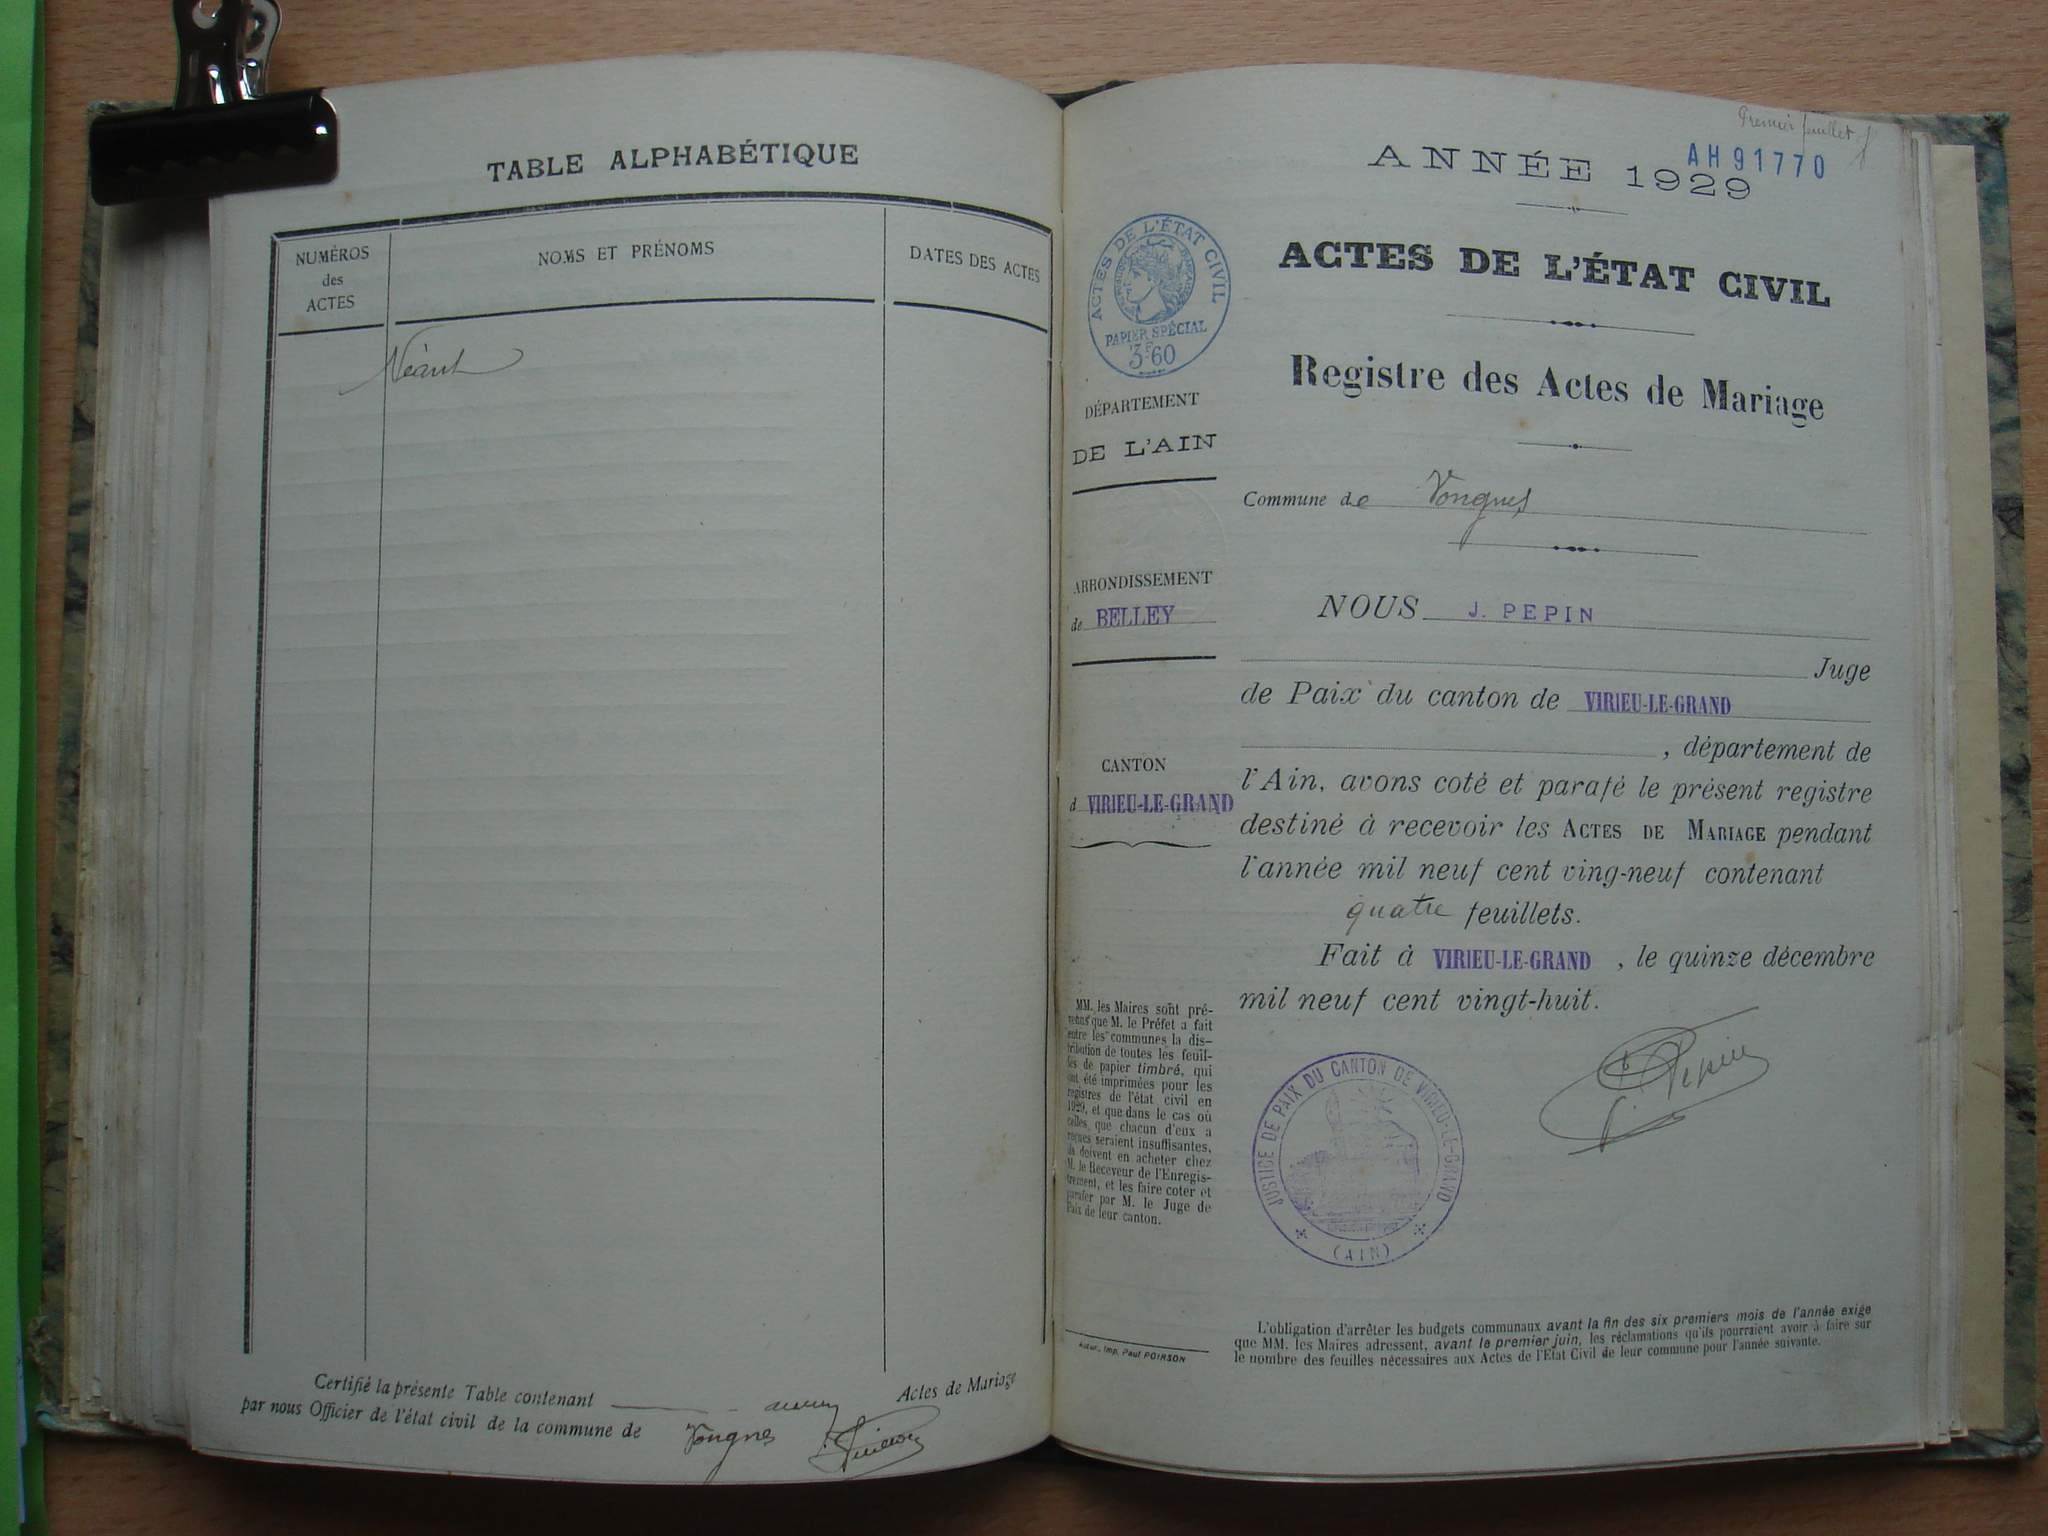 TABLE ALPHABÉTIQUE
NUMÉROS
des
ACTES
NOMS ET PRÉNOMS
DATES DES ACTES
Néant
Certifié la présente Table contenant aucun Actes de Mariage
par nous Officier de l'état civil de la commune de Vongnes
Premier feuillet
AH 91770
ANNÉE 1929
ACTES DE L'ÉTAT CIVIL
PAPIER SPÉCIAL
3F60
ACTES DE L'ÉTAT CIVIL
Registre des Actes de Mariage
DÉPARTEMENT
DE L'AIN
Commune de Vongnes
ARRONDISSEMENT
de BELLEY
NOUS J. PEPIN
Juge
de Paix du canton de VIRIEU-LE-GRAND
, département de
CANTON
d VIRIEU-LE-GRAND
l'Ain, avons coté et parafé le présent registre
destiné à recevoir les ACTES DE MARIAGE pendant
l'année mil neuf cent ving-neuf contenant
quatre feuillets.
Fait à VIRIEU-LE-GRAND, le quinze décembre
mil neuf cent vingt-huit.
Pepin
MM. les Maires sont pré-
venus que M. le Préfet a fait
entre les communes la dis-
tribution de toutes les feuil-
les de papier timbré, qui
ont été imprimées pour les
registres de l'état civil en
1929, et que dans le cas où
celles, que chacun d'eux a
reçues seraient insuffisantes,
ils doivent en acheter chez
M. le Receveur de l'Enregis-
trement, et les faire coter et
parafer par M. le Juge de
Paix de leur canton.
JUSTICE DE PAIX DU CANTON DE VIRIEU-LE-GRAND
(AIN)
Imp. Paul POIRSON
L'obligation d'arrêter les budgets communaux avant la fin des six premiers mois de l'année exige
que MM. les Maires adressent, avant le premier juin, les réclamations qu'ils pourraient avoir à faire sur
le nombre des feuilles nécessaires aux Actes de l'Etat Civil de leur commune pour l'année suivante.